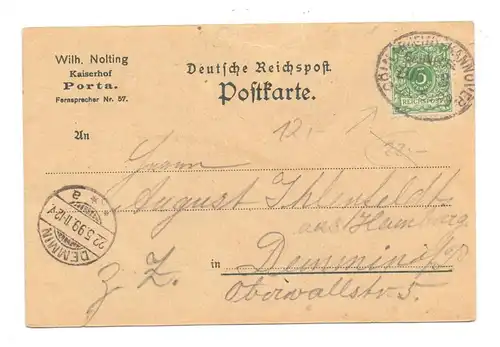 Wilh. Nolting
Kaiserhof
Porta.
Fernsprecher Nr. 57.
Deutsche Reichspost
Postkarte.
An
12,-
Herrn
August Ihlenfeldt
aus Hamburg
z. Z.
in Demmin
Oberwallstr. 5.
DEMMIN
22.5.99.11-12V.
a
5
REICHSPOST
HANNOVER